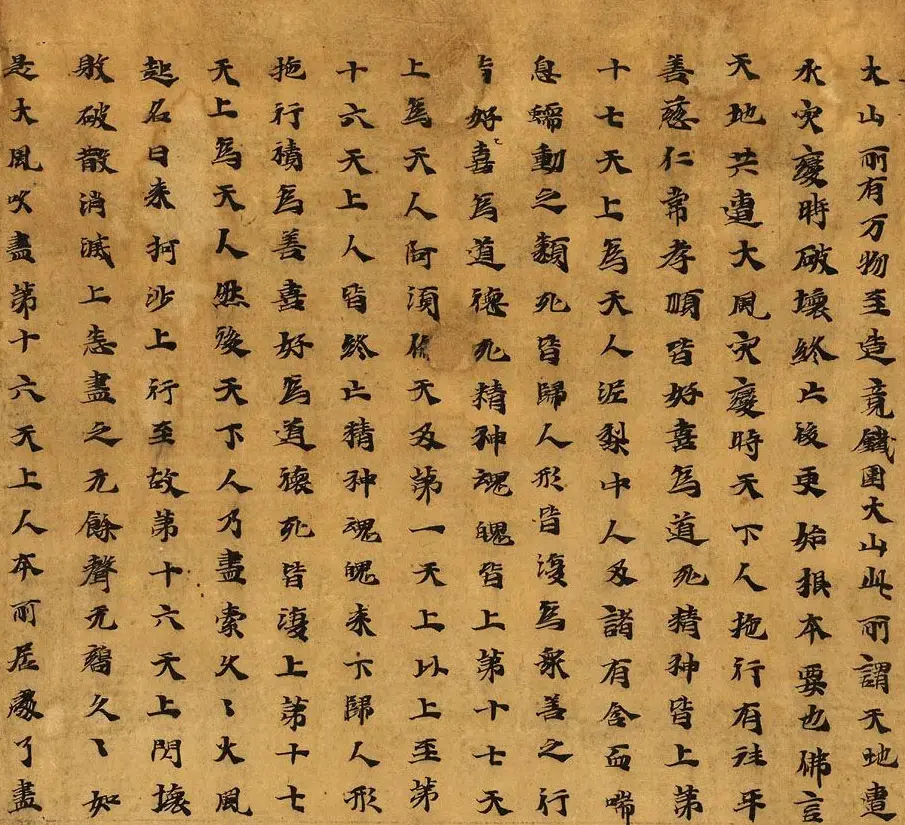 大山所有万物至造竟鐵圍大山此所謂天地遭
水灾變時破壞終亡後更始根本要也佛言
天地共遭大風灾變時天下人拖行有平
善慈仁常孝順皆好喜為道死精神皆上第
十七天上為天人泥梨中人及諸有含血喘
息蠕動之類死皆歸人形皆復為衆善之行
皆好喜為道德死精神魂魄皆上第十七天
上為天人阿須倫天及第一天上以上至第
十六天上人皆終亡精神魂魄来下歸人形
拖行積為善喜好為道德死皆復上第十七
天上為天人然後天下人乃盡索久〻火風
起名曰来柯沙上行至故第十六天上閃壞
敗破散消滅上悉盡之无餘聲无久〻如
是大風吹盡第十六天上人本所居處了盡